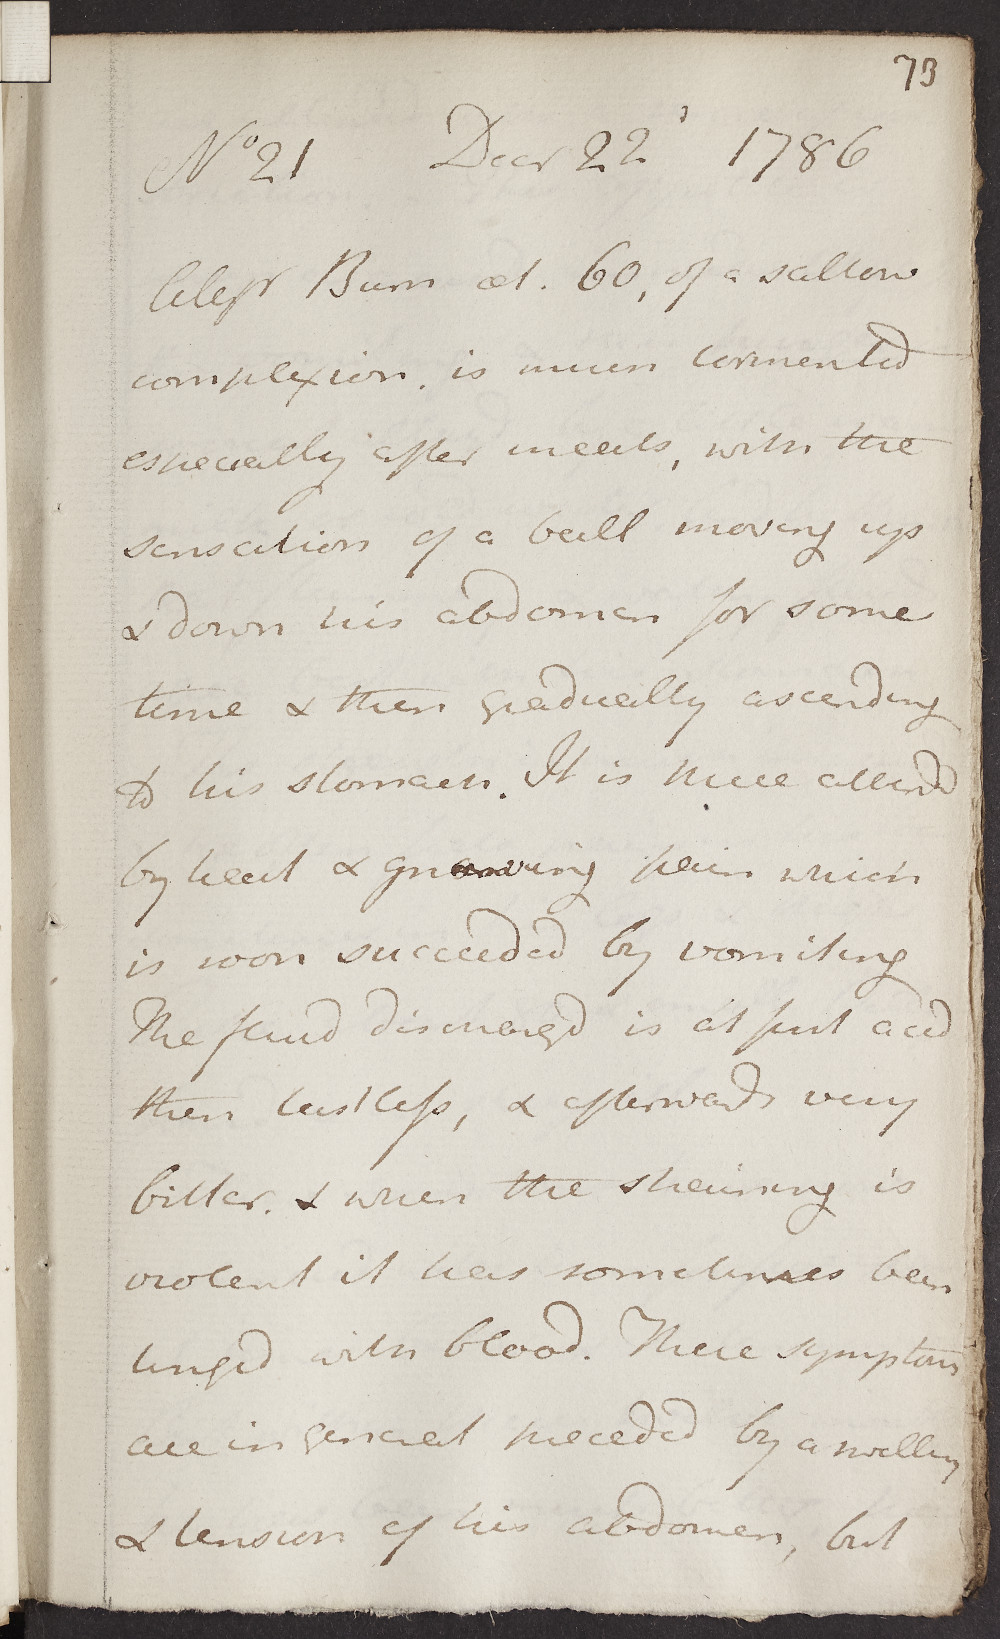 73
No 21 Decr 22d 1786
Burn æt. 60, of a sallow
complexion. is much tormented
especially after meals, with the
sensation of a ball moving up
& down his abdomen for some
time & then gradually ascending
to his stomach. It is there attended
by heat & gnawing pain which
is soon succeeded by vomiting
The fluid discharged is at first acid
then tasteless, & afterwards very
bitter. & when the straining is
violent it has sometimes been
tinged with blood. These symptoms
are in general preceded by a swelling
& tension of his abdomen, but